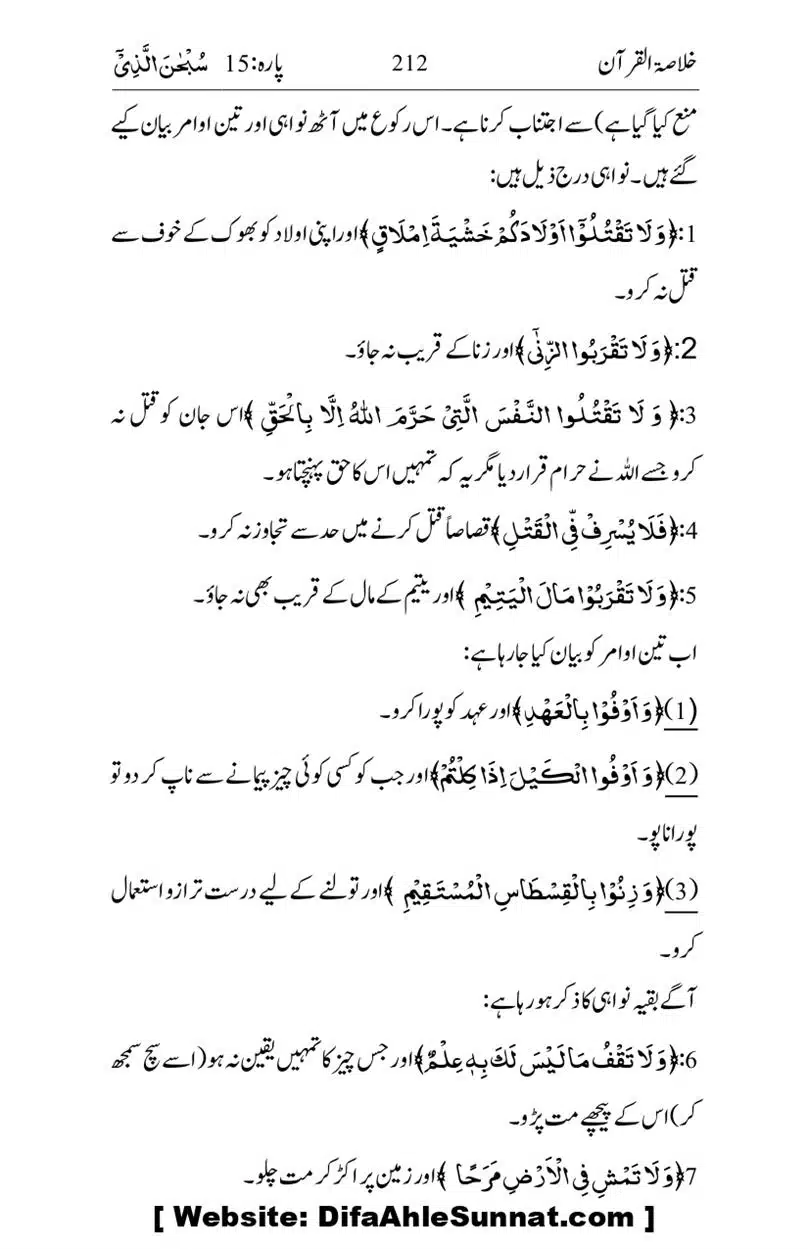 خلاصۃ القرآن 212 پارہ:15 سُبْحٰنَ الَّذِیْۤ
منع کیا گیا ہے) سے اجتناب کرنا ہے۔ اس رکوع میں آٹھ نواہی اور تین اوامر بیان کیے
گئے ہیں۔ نواہی درج ذیل ہیں:
1:﴿وَلَا تَقْتُلُوْۤا اَوْلَادَكُمْ خَشْیَةَ اِمْلَاقٍ﴾ اور اپنی اولاد کو بھوک کے خوف سے
قتل نہ کرو۔
2:﴿وَلَا تَقْرَبُوا الزِّنٰۤی﴾ اور زنا کے قریب نہ جاؤ۔
3:﴿وَ لَا تَقْتُلُوا النَّفْسَ الَّتِیْ حَرَّمَ اللهُ اِلَّا بِالْحَقِّ﴾ اس جان کو قتل نہ
کرو جسے اللہ نے حرام قرار دیا مگر یہ کہ تمہیں اس کا حق پہنچتا ہو۔
4:﴿فَلَا یُسْرِفْ فِّی الْقَتْلِ﴾ قصاصاً قتل کرنے میں حد سے تجاوز نہ کرو۔
5:﴿وَلَا تَقْرَبُوْا مَالَ الْیَتِیْمِ﴾ اور یتیم کے مال کے قریب بھی نہ جاؤ۔
اب تین اوامر کو بیان کیا جا رہا ہے:
(1)﴿وَ اَوْفُوْا بِالْعَهْدِ﴾ اور عہد کو پورا کرو۔
(2)﴿وَ اَوْفُوا الْكَیْلَ اِذَا كِلْتُمْ﴾ اور جب کو کسی کوئی چیز پیمانے سے ناپ کر دو تو
پورا ناپو۔
(3)﴿وَ زِنُوْا بِالْقِسْطَاسِ الْمُسْتَقِیْمِ﴾ اور تولنے کے لیے درست ترازو استعمال
کرو۔
آگے بقیہ نواہی کا ذکر ہو رہا ہے:
6:﴿وَلَا تَقْفُ مَا لَیْسَ لَكَ بِهٖ عِلْمٌ﴾ اور جس چیز کا تمہیں یقین نہ ہو (اسے سچ سمجھ
کر) اس کے پیچھے مت پڑو۔
7﴿وَلَا تَمْشِ فِی الْاَرْضِ مَرَحًا﴾ اور زمین پر اکڑ کر مت چلو۔
[ Website: DifaAhleSunnat.com ]